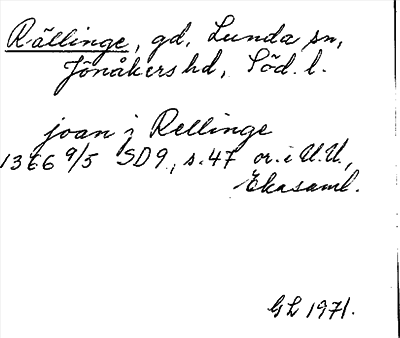 Rällinge, gd, Lunda sn,
Jönåkers hd, Söd. l.
joan j Rellinge
1366 9/5 SD9, s. 47 or. i U.U.,
Ekasaml.
GL 1971.